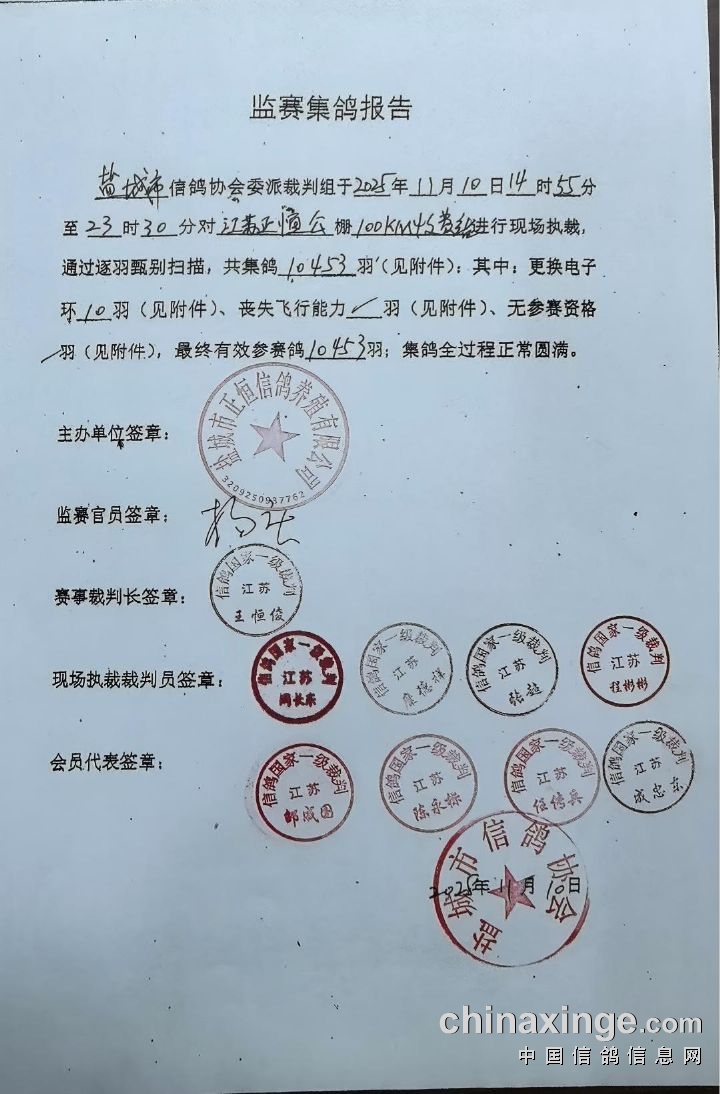 监赛集鸽报告
盐城市信鸽协会委派裁判组于2025年11月10日14时55分
至23时30分对江苏正恒公棚100KM收费站进行现场执裁,
通过逐羽甄别扫描,共集鸽10453羽(见附件);其中:更换电子
环10羽(见附件)、丧失飞行能力/羽(见附件)、无参赛资格
/羽(见附件),最终有效参赛鸽10453羽;集鸽全过程正常圆满。
主办单位签章:
盐城市正恒信鸽养殖有限公司
3209250937762
监赛官员签章:
赛事裁判长签章:
信鸽国家一级裁判
江苏
王恒俊
现场执裁裁判员签章:
信鸽国家一级裁判
江苏
信鸽国家一级裁判
江苏
康德祥
信鸽国家一级裁判
江苏
信鸽国家一级裁判
江苏
程彬彬
会员代表签章:
信鸽国家一级裁判
江苏
信鸽国家一级裁判
江苏
信鸽国家一级裁判
江苏
信鸽国家一级裁判
江苏
成忠东
盐城市信鸽协会
2025年11月10日
chinaxinge.com
中国信鸽信息网